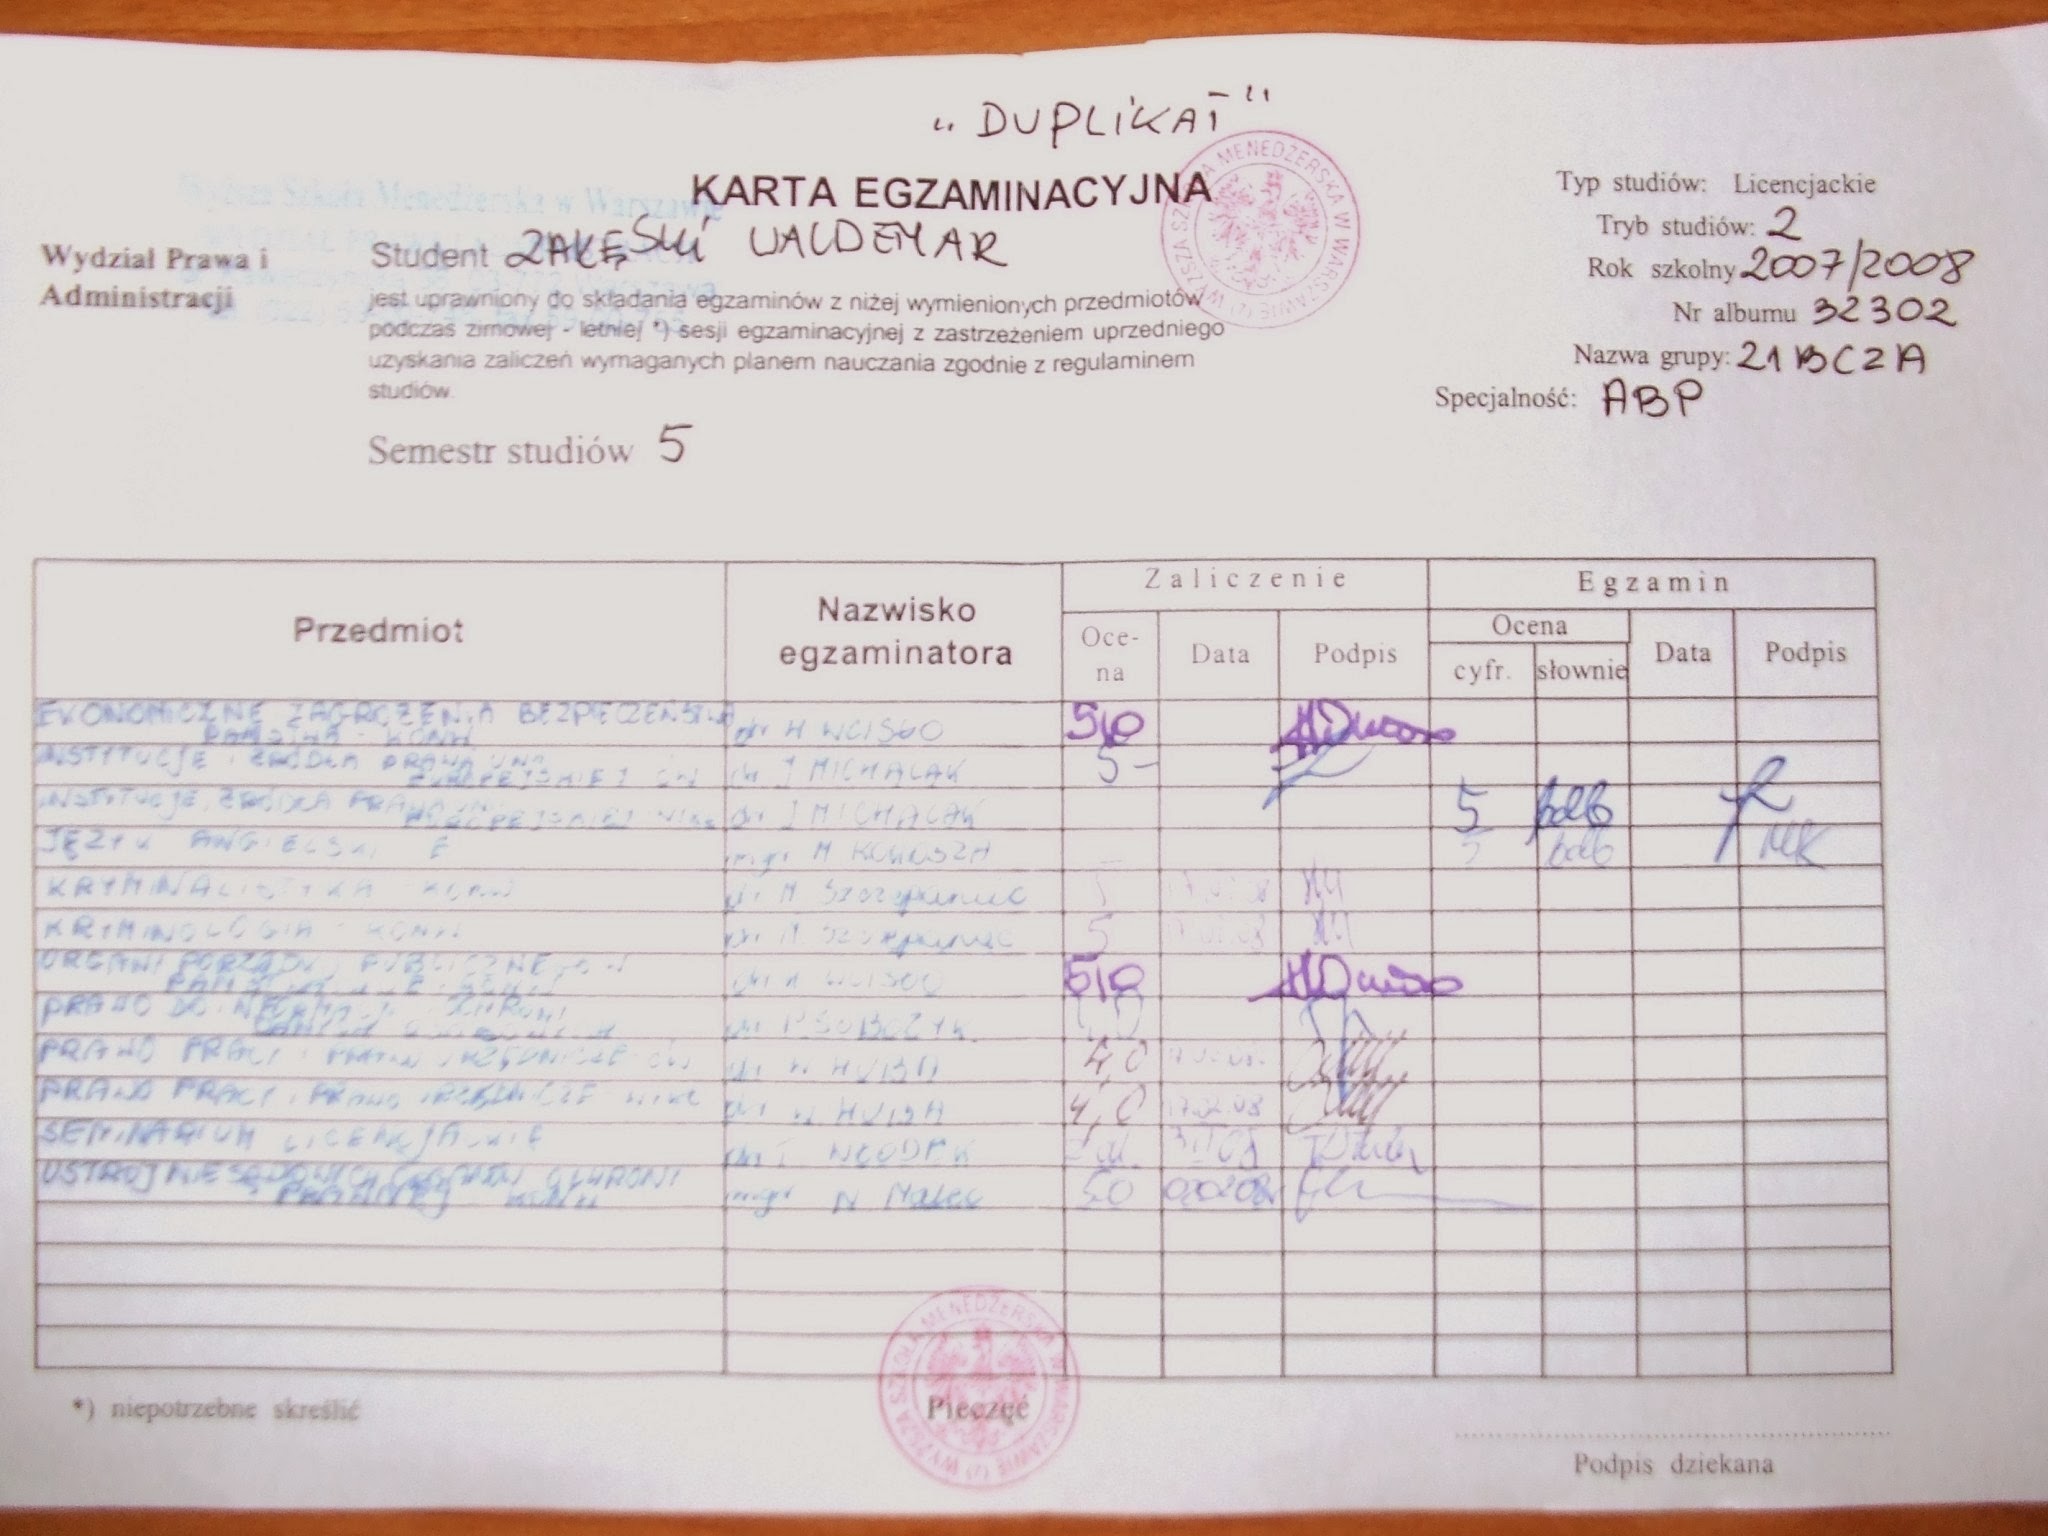 „DUPLIKAT"
KARTA EGZAMINACYJNA
WYŻSZA SZKOŁA MENEDŻERSKA W WARSZAWIE (2)
Wyższa Szkoła Menedżerska w Warszawie
Wydział Prawa i
Administracji
Student ZAŁĘSKI WALDEMAR
jest uprawniony do składania egzaminów z niżej wymienionych przedmiotów
podczas zimowej - letniej *) sesji egzaminacyjnej z zastrzeżeniem uprzedniego
uzyskania zaliczeń wymaganych planem nauczania zgodnie z regulaminem
studiów.
Semestr studiów 5
Typ studiów: Licencjackie
Tryb studiów: 2
Rok szkolny 2007/2008
Nr albumu 32302
Nazwa grupy: 21BCZA
Specjalność: ABP
Przedmiot Nazwisko egzaminatora Zaliczenie Egzamin
Oce-na Data Podpis Ocena Data Podpis
cyfr. słownie
EKONOMICZNE ZAGROŻENIA BEZPIECZEŃSTWA PAŃSTWA - KONW dr H WCISŁO 5,0
INSTYTUCJE I ŹRÓDŁA PRAWA UNII EUROPEJSKIEJ ĆW dr J MICHALAK 5-
INSTYTUCJE I ŹRÓDŁA PRAWA UNII EUROPEJSKIEJ dr J MICHALAK 5 bdb
JĘZYK ANGIELSKI E mgr M 5 bdb
KRYMINALISTYKA - KONW dr M Szczepaniec 5 17.02.08
KRYMINOLOGIA - KONW dr M. Szczepaniec 5 17.02.08
ORGANY PORZĄDKU PUBLICZNEGO W PAŃSTWIE - KONW dr H WCISŁO 5,0
PRAWO DO OCHRONY DANYCH OSOBOWYCH dr P. SOBCZYK
PRAWO PRACY I PRAWO URZĘDNICZE ĆW dr W HUBA 4,0
PRAWO PRACY I PRAWO URZĘDNICZE dr W HUBA 4,0 17.02.08
SEMINARIUM LICENCJACKIE dr T WŁODEK
USTRÓJ ORGANÓW OCHRONY PRAWNEJ KONW mgr N Malec 5,0
*) niepotrzebne skreślić
WYŻSZA SZKOŁA MENEDŻERSKA W WARSZAWIE (2)
Pieczęć
Podpis dziekana